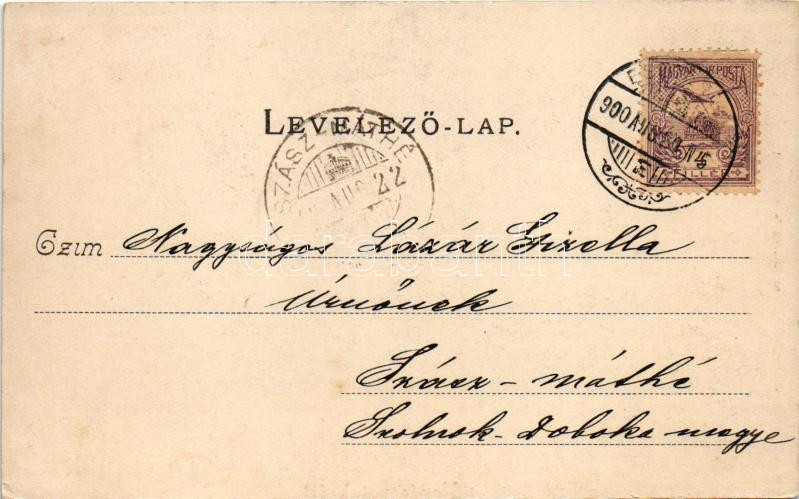 MAGYAR KIR. POSTA
900 AUG
FILLÉR
LEVELEZŐ-LAP.
SZÁSZ-MÁTHÉ
AUG 22
Czim Nagyságos Lázár Gizella
Úrnőnek
Szász-máthé
Szolnok-Doboka megye
darabanth